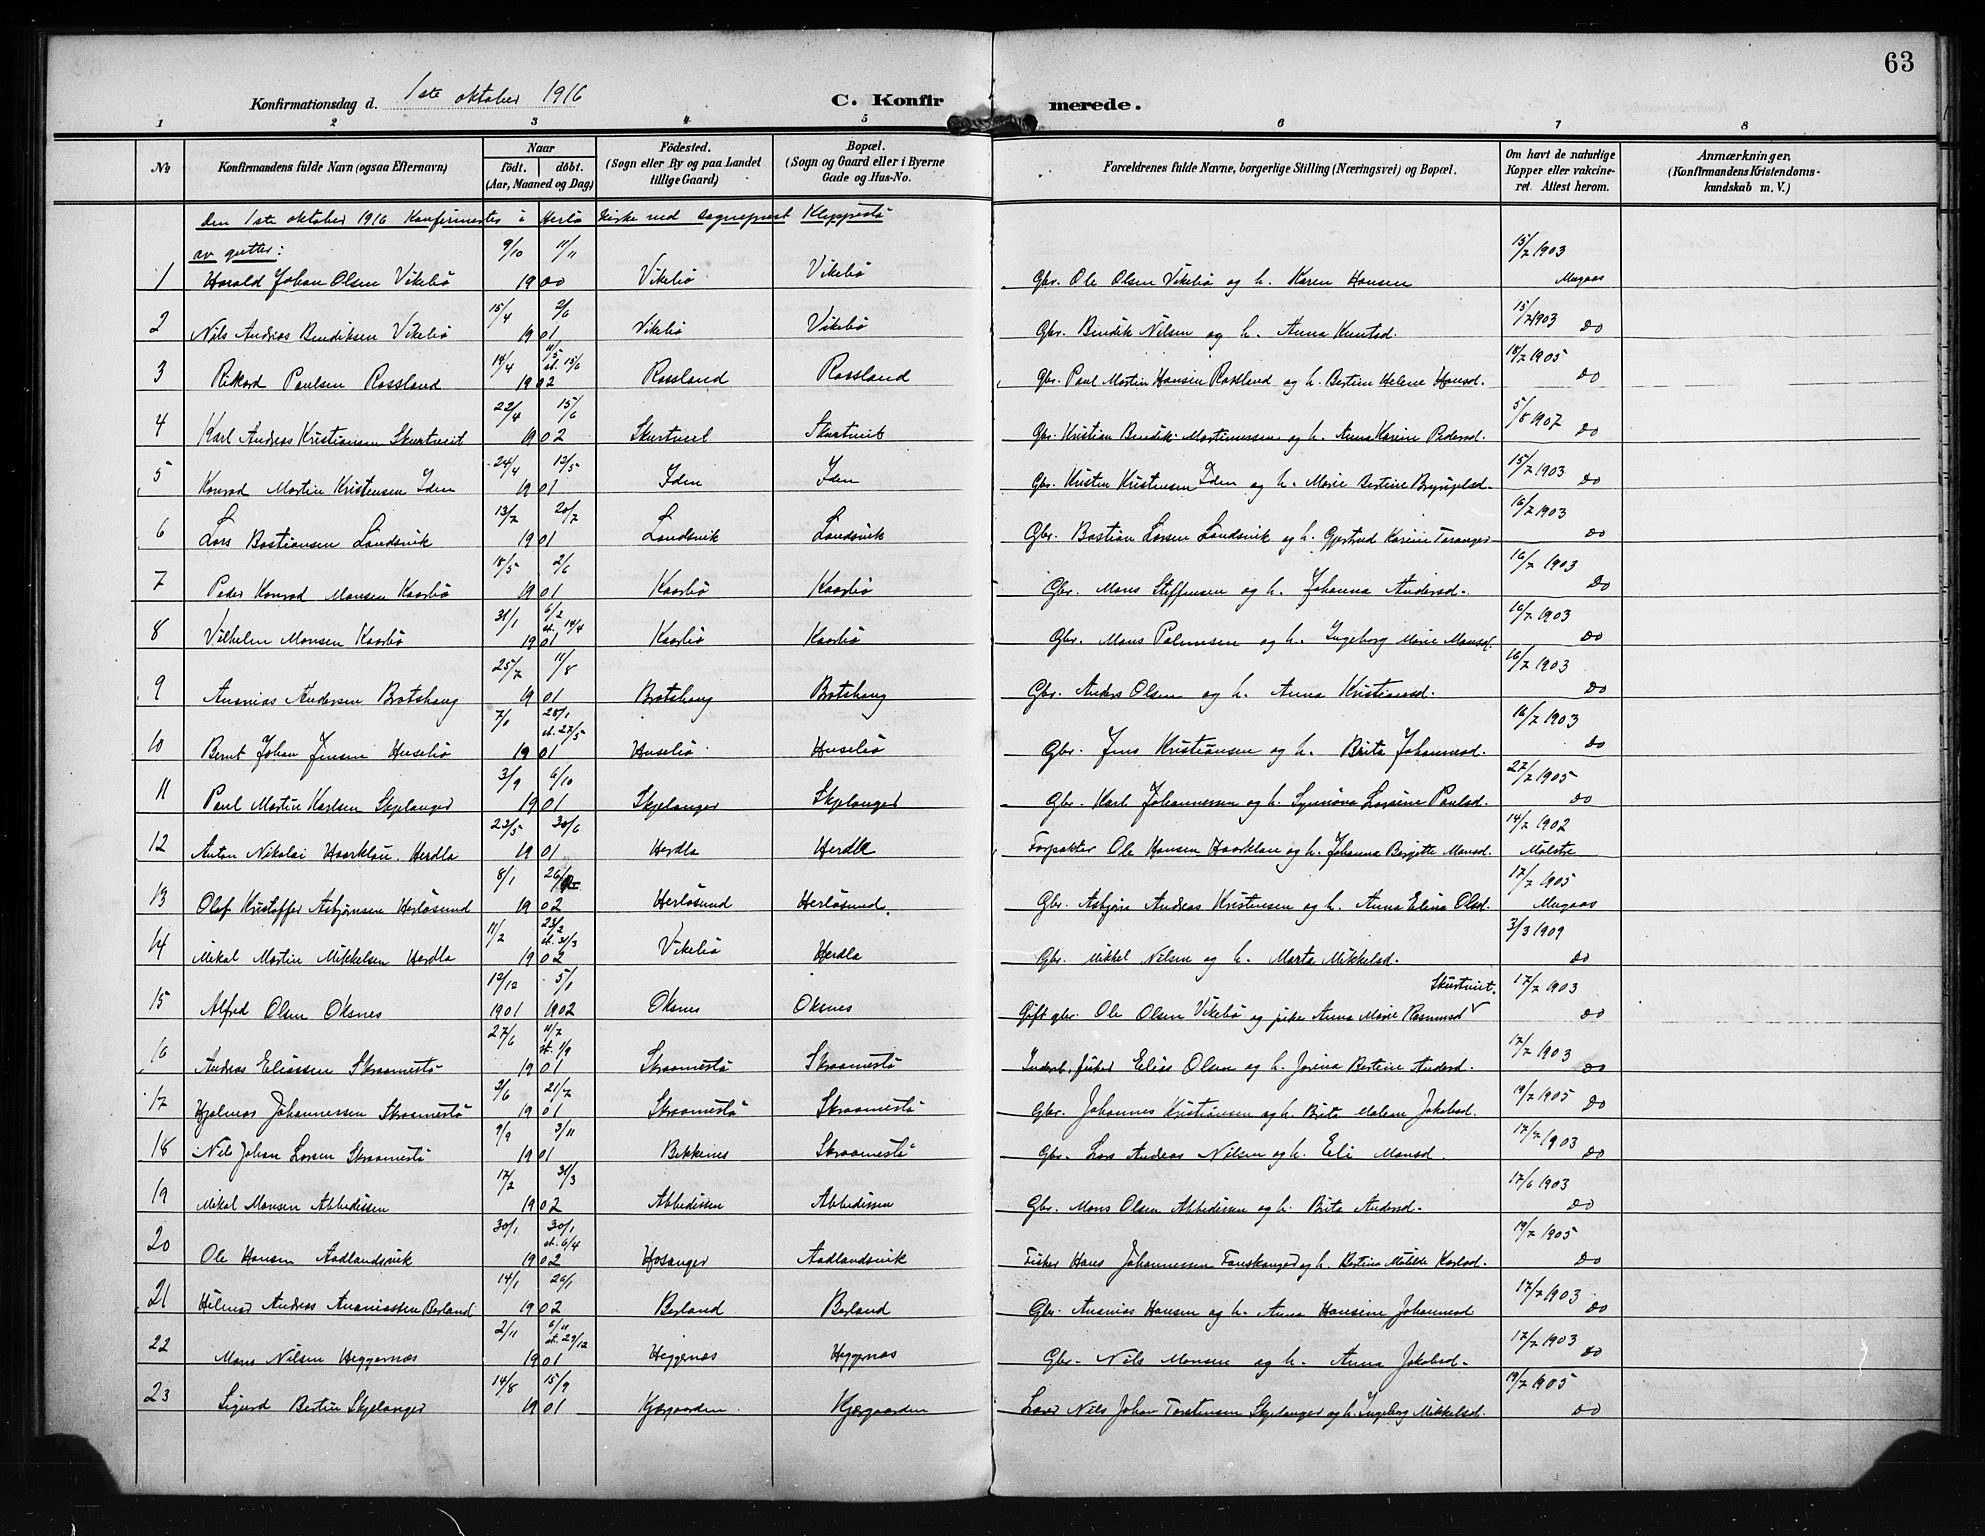 63
Konfirmationsdag d. 1ste oktober 1916 C. Konfirmerede.
1 2 3 4 5 6 7 8
№ Konfirmandens fulde Navn (ogsaa Efternavn) Naar Født. døbt. (Aar, Maaned og Dag) Födested. (Sogn eller By og paa Landet tillige Gaard) Bopæl. (Sogn og Gaard eller i Byerne Gade og Hus-No. Forældrenes fulde Navne, borgerlige Stilling (Næringsvei) og Bopæl. Om havt de naturlige Kopper eller vakcineret. Attest herom. Anmærkninger. (Konfirmandens Kristendomskundskab m. V.)
Den 1ste oktober 1916 Konfirmertes i Herlø kirke ved sogneprest Kleppestø
av gutter:
1 Harald Johan Olsen Vikebø 9/10 11/11 1900 Vikebø Vikebø Gbr. Ole Olsen Vikebø og h. Karen Hansen 15/7 1903 Mugaas
2 Nils Andreas Bendiksen Vikebø 15/4 2/6 1901 Vikebø Vikebø Gbr. Bendik Nilsen og h. Anna Knutsd. 15/7 1903 Do
3 Rikard Paulsen Rossland 14/4 11/5 st. 15/6 1902 Rossland Rossland Gbr. Paul Martin Hansen Rossland og h. Bertine Helene Hansd. 18/7 1905 Do
4 Karl Andreas Kristiansen Skurtveit 22/4 15/6 1902 Skurtveit Skurtveit Gbr. Kristian Bendik Martinussen og h. Anna Karine Pedersd. 5/8 1907 Do
5 Konrad Martin Kristensen Iden 24/4 12/5 1901 Iden Iden Gbr. Kristen Kristensen Iden og h. Marie Bertine Brynjelsd. 15/7 1903 Do
6 Lars Bastiansen Landsvik 13/7 20/7 1901 Landsvik Landsvik Gbr. Bastian Larsen Landsvik og h. Gjertrud Karine Taranger 16/7 1903 Do
7 Peder Konrad Monsen Kaarbø 18/5 2/6 1901 Kaarbø Kaarbø Gbr. Mons Steffensen og h. Johanna Andersd. 16/7 1903 Do
8 Vilhelm Monsen Kaarbø 31/1 6/2 st. 14/4 1901 Kaarbø Kaarbø Gbr. Mons Palmesen og h. Ingeborg Marie Monsd. 16/7 1903 Do
9 Ananias Andersen Bratshaug 25/7 11/8 1901 Bratshaug Bratshaug Gbr. Anders Olsen og h. Anna Kristiansd. 16/7 1903 Do
10 Bernt Johan Jensen Husebø 7/1 20/1 st. 27/5 1901 Husebø Husebø Gbr. Jens Kristiansen og h. Brita Johannesd. 16/7 1903 Do
11 Paul Martin Karlsen Skjelanger 3/9 6/10 1901 Skjelanger Skjelanger Gbr. Karl Johannessen og h. Synnøva Larsine Paulsd. 27/7 1905 Do
12 Anton Nikolai Haarklau Herdla 23/5 30/6 1901 Herdla Herdla Forpakter Ole Hansen Haarklau og h. Johanna Bergitte Monsd. 14/7 1902 Molstre
13 Olaf Kristoffer Asbjørnsen Herløsund 8/1 26/ 1902 Herløsund Herløsund Gbr. Asbjørn Andreas Kristensen og h. Anna Elina Olsd. 17/7 1905 Mugaas
14 Mikal Martin Mikkelsen Herdla 11/2 23/2 st. 31/3 1902 Vikebø Herdla Gbr. Mikkel Nilsen og h. Marta Mikkelsd. 3/3 1909 Do
15 Alfred Olsen Oksnes 12/12 1901 5/1 1902 Oksnes Oksnes Gift gbr. Ole Olsen Vikebø og pike Anna Marie Rasmusd. Skurtveit. 17/7 1903 Do
16 Andreas Eliassen Skraamestø 27/6 11/7 st. 1/9 1901 Skraamestø Skraamestø Inderst, fisker Elias Olsen og h. Jorina Bertine Andersd. 17/7 1903 Do
17 Hjalmar Johannessen Skraamestø 3/6 21/7 1901 Skraamestø Skraamestø Gbr. Johannes Kristiansen og h. Brita Malene Jakobsd. 19/7 1905 Do
18 Nils Johan Larsen Skraamestø 9/9 3/11 1901 Bekkenes Skraamestø Gbr. Lars Andreas Nilsen og h. Eli Monsd. 17/7 1903 Do
19 Mikal Monsen Abbedissen 17/2 31/3 1902 Abbedissen Abbedissen Gbr. Mons Olsen Abbedissen og h. Brita Andersd. 17/6 1903 Do
20 Ole Hansen Aadlandsvik 30/1 30/1 st. 6/4 1902 Hosanger Aadlandsvik Fisker Hans Johannessen Fanskanger og h. Bertina Matilde Karlsd. 19/7 1905 Do
21 Hilmar Andreas Ananiassen Berland 14/1 26/1 1902 Berland Berland Gbr. Ananias Hansen og h. Anna Hansine Johannesd 17/7 1903 Do
22 Mons Nilsen Heggernæs 2/11 6/11 st. 29/12 1901 Heggernæs Heggernæs Gbr. Nils Monsen og h. Anna Jakobsd. 17/7 1903 Do
23 Sigurd Bertin Skjelanger 14/8 15/9 1901 Kjærgaarden Kjærgaarden Nils Johan Torstensen Skjelanger og h. Ingeborg Mikkelsd. 19/7 1905 Do